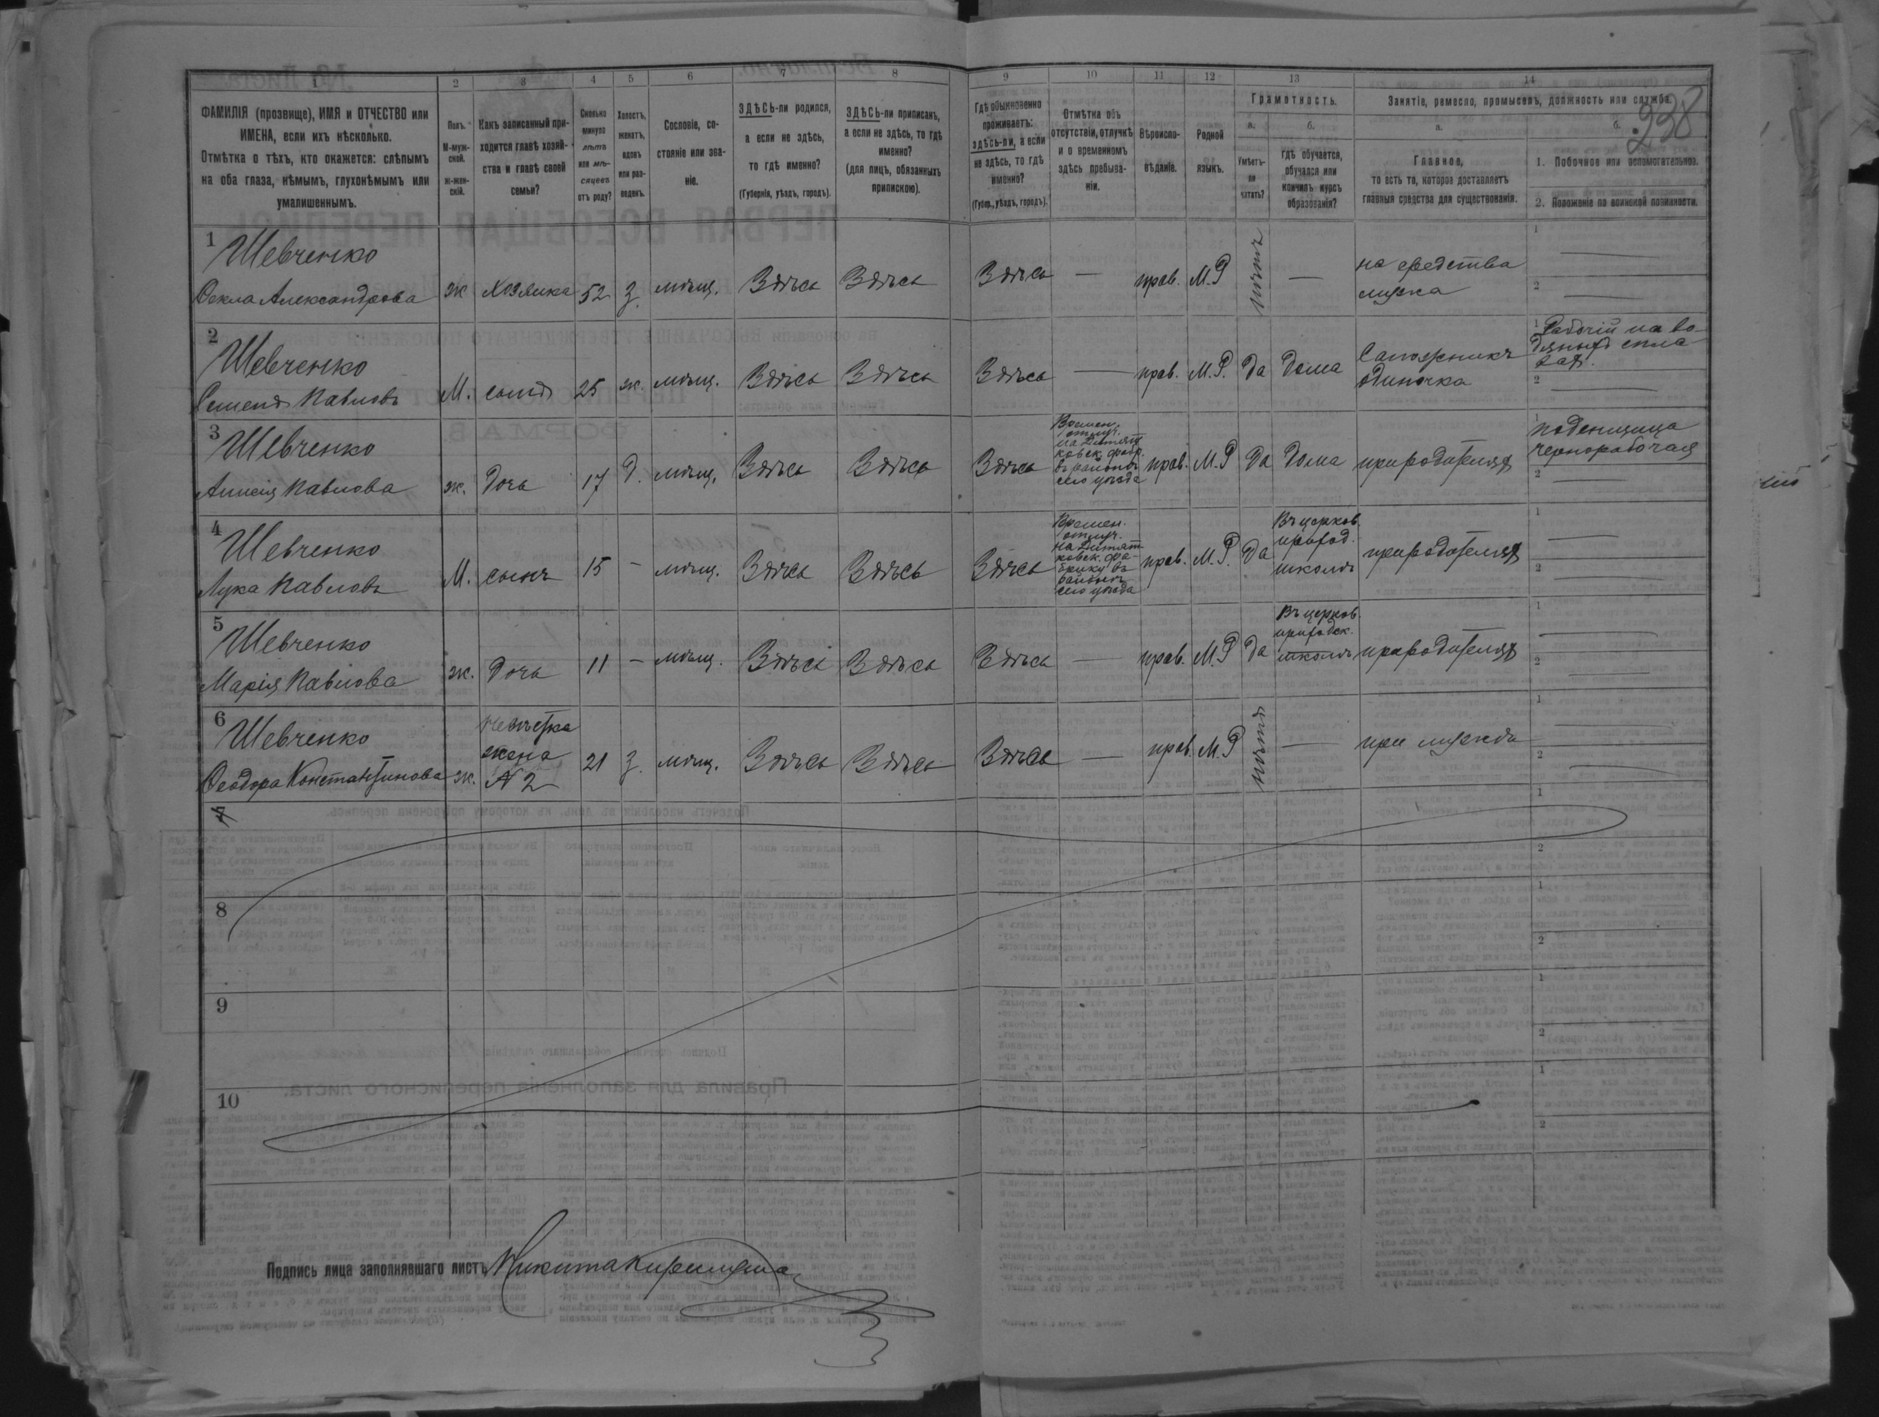 238
1 2 3 4 5 6 7 8 9 10 11 12 13 14
ФАМИЛІЯ (прозвище), ИМЯ и ОТЧЕСТВО или
ИМЕНА, если ихъ нѣсколько.
Отмѣтка о тѣхъ, кто окажется: слѣпымъ
на оба глаза, нѣмымъ, глухонѣмымъ или
умалишеннымъ.
Полъ.
М-муж-
ской.
ж-жен-
скій.
Какъ записанный при-
ходится главѣ хозяй-
ства и главѣ своей
семьи?
Сколько
минуло
лѣтъ
или мѣ-
сяцевъ
отъ роду?
Холостъ,
женатъ,
вдовъ
или раз-
веденъ.
Сословіе, со-
стояніе или зва-
ніе.
ЗДѢСЬ-ли родился,
а если не здѣсь,
то гдѣ именно?
(Губернія, уѣздъ, городъ).
ЗДѢСЬ-ли приписанъ,
а если не здѣсь, то гдѣ
именно?
(для лицъ, обязанныхъ
припискою).
Гдѣ обыкновенно
проживаетъ:
здѣсь-ли, а если
не здѣсь, то гдѣ
именно?
(Губер., уѣздъ, городъ).
Отмѣтка объ
отсутствіи, отлучкѣ
и о временномъ
здѣсь пребыва-
ніи.
Вѣроиспо-
вѣданіе.
Родной
языкъ.
Грамотность.
а.
Умѣетъ-
ли
читать?
б.
Гдѣ обучается,
обучался или
кончилъ курсъ
образованія?
Занятіе, ремесло, промыселъ, должность или служба.
а.
Главное,
то есть то, которое доставляетъ
главныя средства для существованія.
б.
1. Побочное или вспомогательное.
2. Положеніе по воинской повинности.
1
Шевченко
Ѳекла Александрова
ж
хозяйка
52
з.
мѣщ.
Здѣсь
Здѣсь
Здѣсь
—
прав.
М.Р
нѣтъ
—
на средства
мужа
2
Шевченко
Семенъ Павловъ
М.
сынъ
25
ж.
мѣщ.
Здѣсь
Здѣсь
Здѣсь
—
прав.
М.Р.
Да
Дома
Сапожникъ
одиночка
Рабочій на во-
3
Шевченко
Павлова
ж.
Дочь
17
д.
мѣщ.
Здѣсь
Здѣсь
Здѣсь
Времен.
отлуч.
въ районѣ
сего уѣзда
прав.
М.Р
Да
Дома
при родителяхъ
поденщица
чернорабочая
4
Шевченко
Лука Павловъ
М.
сынъ
15
—
мѣщ.
Здѣсь
Здѣсь
Здѣсь
Времен.
отлуч.
сего уѣзда
прав.
М.Р.
Да
Въ церков.
приход.
школѣ
при родителяхъ
5
Шевченко
Марія Павлова
ж.
Дочь
11
—
мѣщ.
Здѣсь
Здѣсь
Здѣсь
—
прав.
М.Р
Да
Въ церков.
приходск.
школѣ
при родителяхъ
6
Шевченко
Ѳеодора Константинова
ж.
невѣстка
жена
№ 2
21
з.
мѣщ.
Здѣсь
Здѣсь
Здѣсь
—
прав
М.Р
нѣтъ
—
при мужѣ
7
8
9
10
Подпись лица заполнявшаго листъ Никита